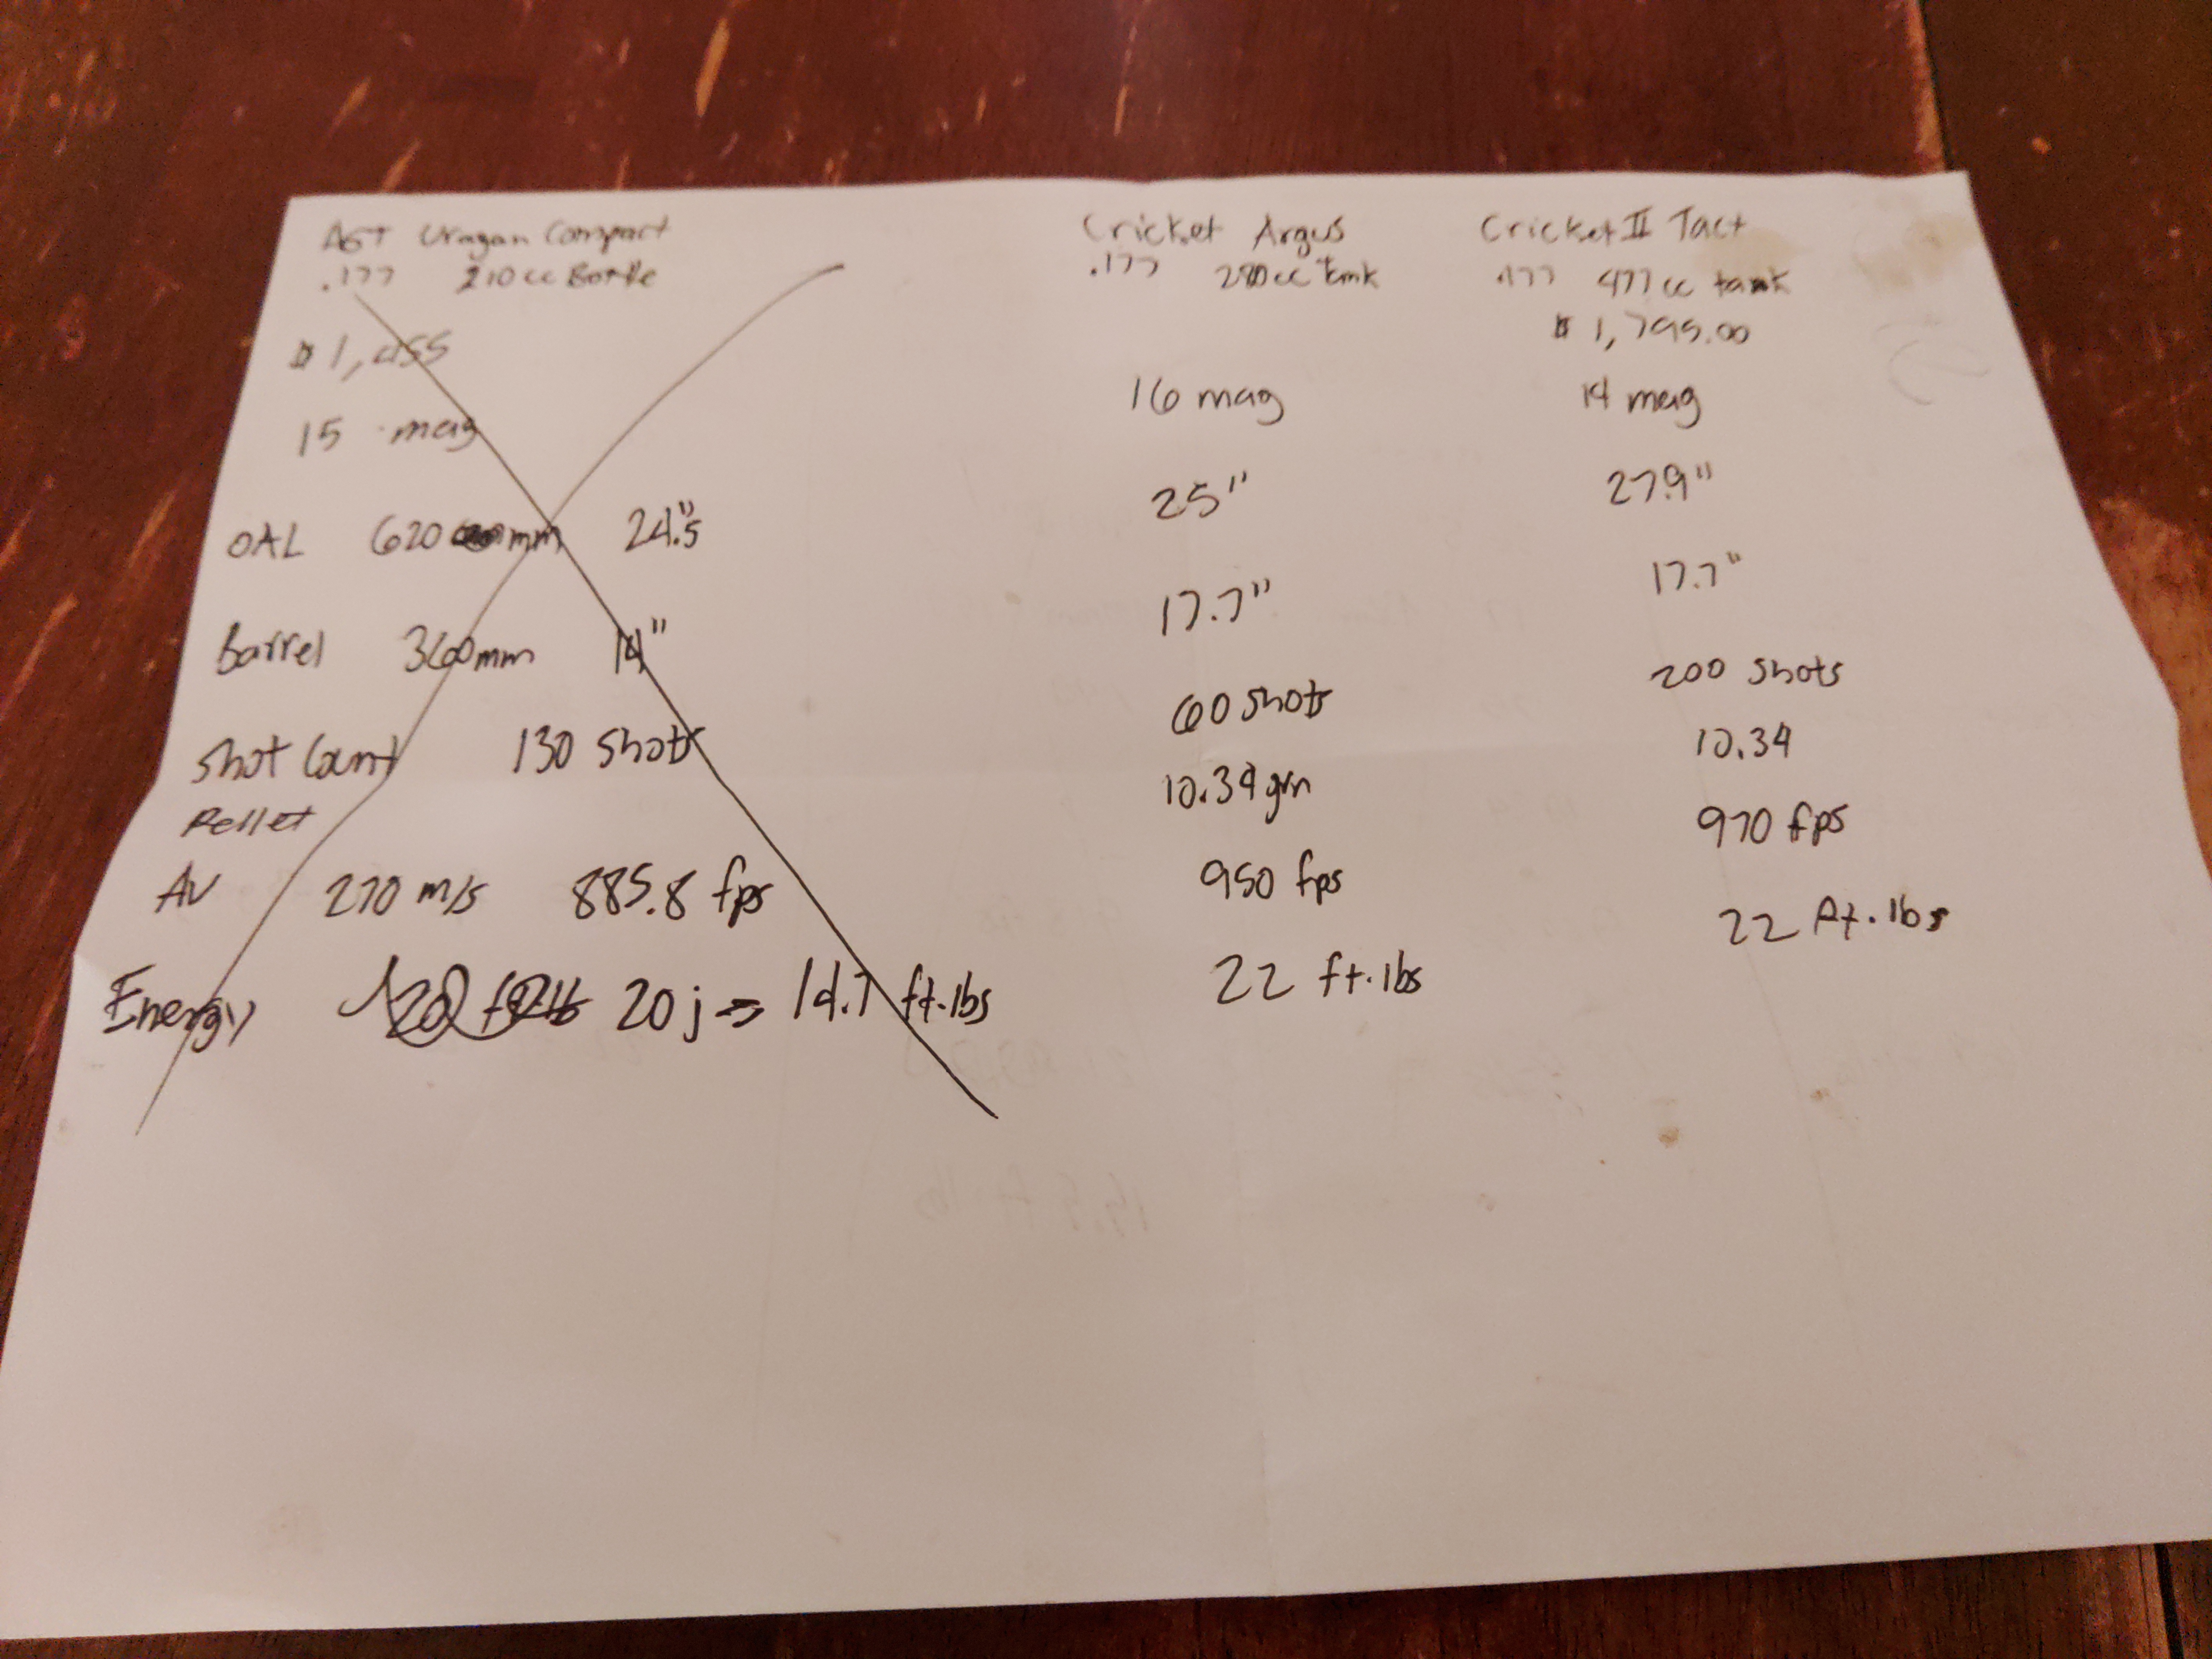 AGT Uragan Compact
.177 210cc Bottle
$1,455
15 mag
OAL 620 mm 24.5"
Barrel 360mm 14"
Shot Count 130 shots
Pellet
AV 270 m/s 885.8 fps
Energy 20 j => 14.7 ft.lbs
Cricket Argus
.177 280cc tank
16 mag
25"
17.7"
60 shots
10.34 grn
950 fps
22 ft.lbs
Cricket II Tact
.177 477cc tank
$1,795.00
14 mag
27.9"
17.7"
200 shots
10.34
970 fps
22 ft.lbs